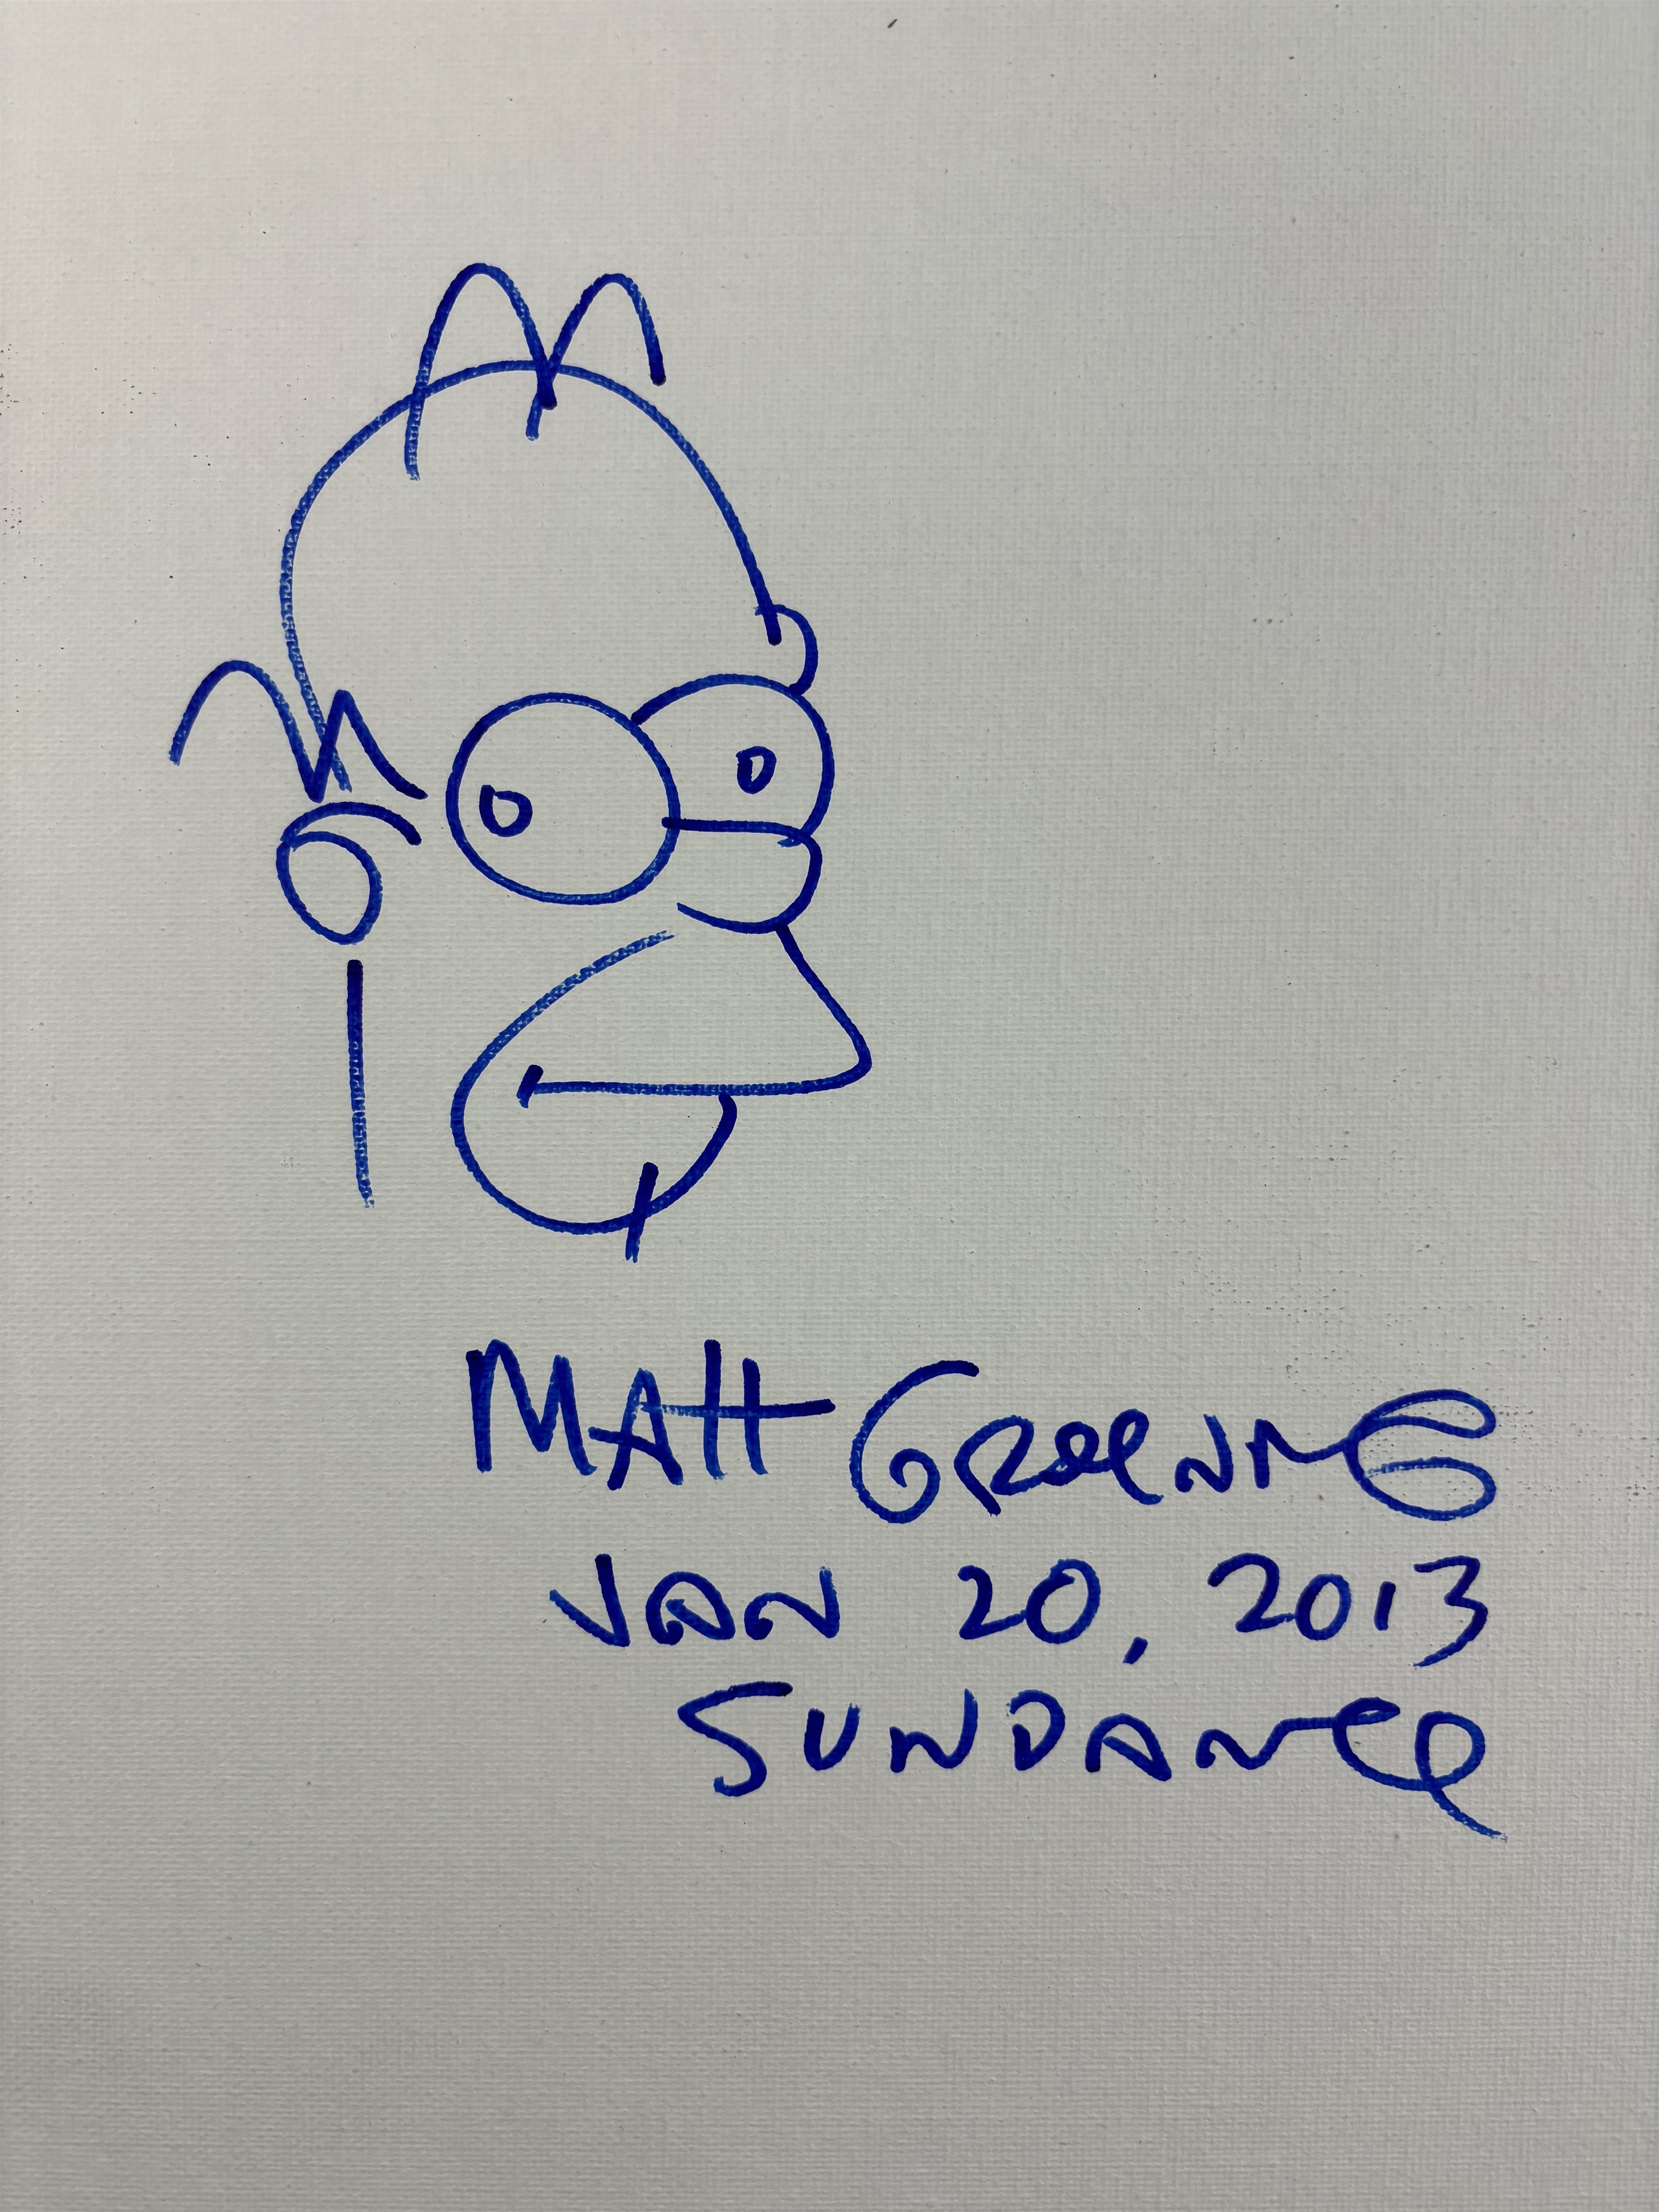 MATT GROENING
JAN 20, 2013
SUNDANCE